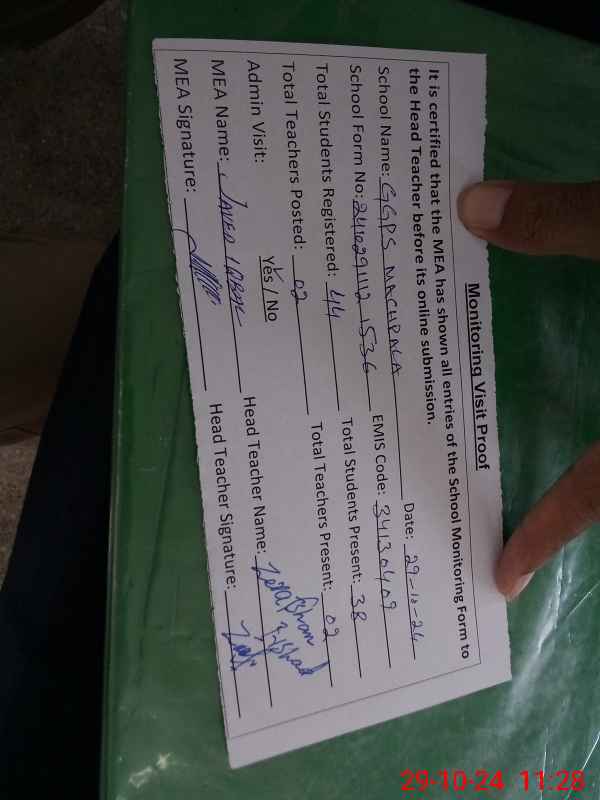 Monitoring Visit Proof
It is certified that the MEA has shown all entries of the School Monitoring Form to
the Head Teacher before its online submission.
Date: 29-10-24
School Name: GGPS MACHPALA
School Form No: 2410291112 1536 EMIS Code: 34130409
Total Students Registered: 44 Total Students Present: 38
Total Teachers Posted: 02 Total Teachers Present: 02
Admin Visit: Yes / No
MEA Name: JAVED IQBAL Head Teacher Name: Irshad
MEA Signature: Head Teacher Signature:
29-10-24 11:28